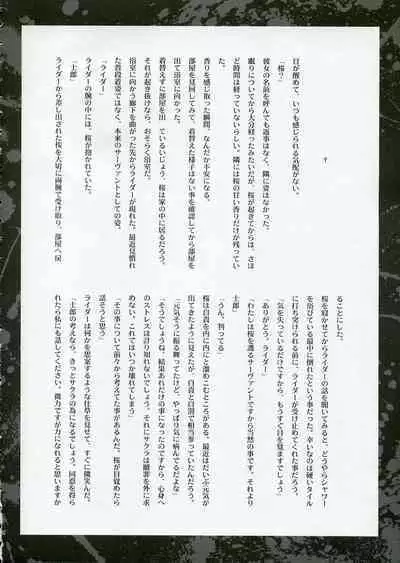 †
目が醒めて、いつも感じられる気配がない。
「桜？」
彼女の名前を呼んでも返事はなく、隣に姿はなかった。
眠りについてから大分経ったみたいだが、桜が起きてからは、さほ
ど時間は経っていないらしい。隣には桜の甘い香りだけが残ってい
た。
香りを感じ取った瞬間、なんだか不安になる。
部屋を見回してみて、着替えた様子はない事を確認してから部屋を
出て浴室に向かった。
着替えずに部屋を出ているいじょう、桜は家の中に居るだろう。
それが起き抜けなら、おそらく浴室だ。
浴室に向かう廊下を曲がった先からライダーが現れた。最近見慣れ
た普段着姿ではなく、本来のサーヴァントとしての姿。
「ライダー」
ライダーの腕の中には、桜が抱かれていた。
「士郎」
ライダーから差し出された桜を大切に両腕で受け取り、部屋へ戻
ることにした。
桜を寝かせてからライダーの話を聞いてみると、どうやらシャワー
を浴びている最中に倒れたという事だった。幸いなのは硬いタイル
に打ち突けられる前に、ライダーが受け止めてくれた事だろう。
「気を失っているだけですから、もうすぐ目を覚ますでしょう」
「ありがとう、ライダー」
「わたしは桜を護るサーヴァントですから当然の事です。それより
士郎」
「うん、判ってる」
桜は自責を内に内にと溜めこむところがある。最近はだいぶ元気が
出てきたように見えたが、自責と自罰で相当参っていたんだろう。
「元気そうに振る舞ってたけど、やっぱり気に病んでるんだよな」
「そうでしょうね。結果あれだけの事になったのですから、心身へ
のストレスは計り知れないでしょう。それにサクラは贖罪を外に求
めない、これではいつか壊れてしまう」
「その事について前々から考えてた事があるんだ。桜が目覚めたら
話そうと思う」
ライダーは何かを思案するような仕草を見せて、すぐに微笑んだ。
「士郎の考えなら、きっとサクラの為になるでしょう。同意を得ら
れたら私にも話してください。微力ですが力になれると思いますか